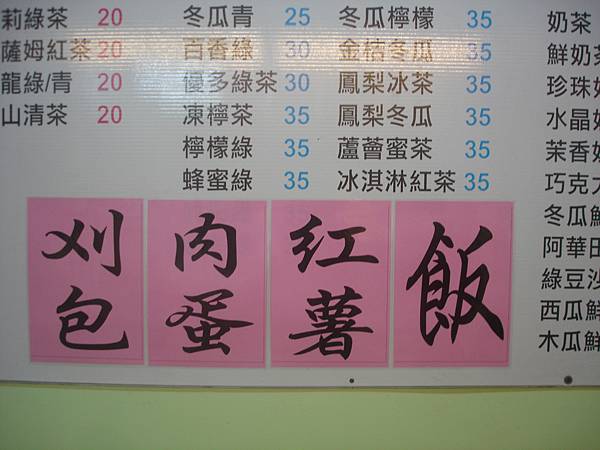 莉綠茶 20
薩姆紅茶 20
龍綠/青 20
山清茶 20
冬瓜青 25
百香綠 30
優多綠茶 30
凍檸茶 35
檸檬綠 35
蜂蜜綠 35
冬瓜檸檬 35
金桔冬瓜 35
鳳梨冰茶 35
鳳梨冬瓜 35
蘆薈蜜茶 35
冰淇淋紅茶 35
奶茶
鮮奶茶
珍珠奶
水晶奶
茉香奶
巧克力
冬瓜鮮
阿華田
綠豆沙
西瓜鮮
木瓜鮮
刈包
肉蛋
红薯
飯